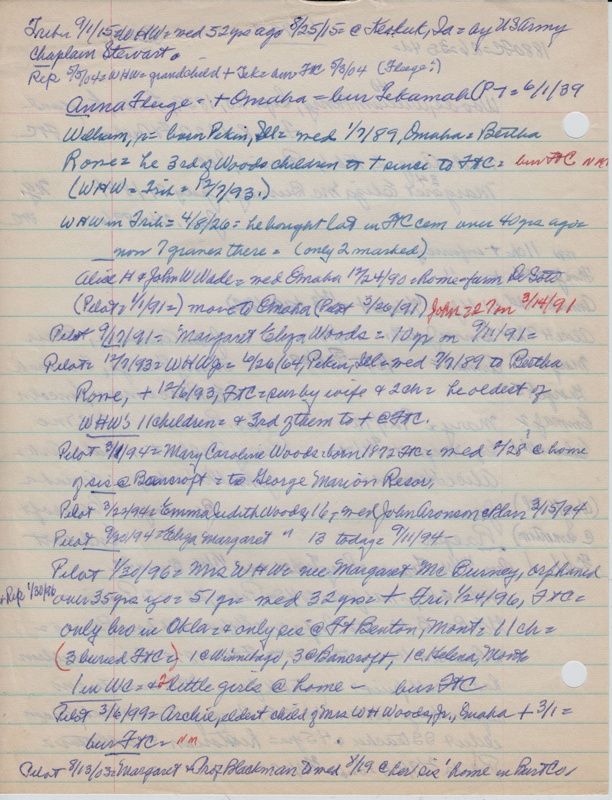 Trib= 9/1/15= WHW= wed 52 yrs ago 8/25/15= @ Keokuk, Ia= by US Army
Chaplain Stewart.
Rep 5/5/04= WHW= grandchild + Tek= bur FtC 5/3/04 (Fluge?)
Anna Fluge= + Omaha= bur Tekamah (P-T= 6/1/39
William, Jr= born Pekin, Ill= wed 1/7/89, Omaha= Bertha
Rome= he 3rd of Woods children to + since to FtC= bur FtC NM
(WHW= Trib= 12/7/93.)
WHW in Trib= 4/8/26= he bought lot in FtC cem over 40 yrs ago=
now 7 graves there= (only 2 marked)
Alice H & John W Wade= wed Omaha 12/24/90= Rome= farm De Soto
(Pilot= 1/1/91=) move to Omaha (Pilot 3/26/91) John= 27 on 3/14/91
Pilot 9/17/91= Margaret Eliza Woods= 10 yr on 9/11/91=
Pilot= 12/7/93= WHW Jr= 6/26/64, Pekin, Ill= wed 2/7/89 to Bertha
Rome, + 12/6/93, FtC= sur by wife & 2 ch= he oldest of
WHW's 11 children= & 3rd of them to + @ FtC.
Pilot 3/1/94= Mary Caroline Woods= born 1872 FtC= wed 2/28 @ home
of sis @ Bancroft= to George Marion Resor,
Pilot 3/22/94= Emma Judith Woods, 16,= wed John Aronson @ Blair 3/15/94
Pilot 9/20/94= Eliza Margaret " 13 today= 9/11/94=
Pilot 1/30/96= Mrs WHW= nee Margaret Mc Burney, orphaned
+Rep 1/30/96 over 35 yrs ago= 51 yr wed 32 yrs= + Fri 1/24/96, FtC=
only bro in Okla= & only sis @ Ft Benton, Mont= 11 ch=
(3 buried FtC=) 1 @ Winnebago, 3 @ Bancroft, 1 @ Helena, Mont
1 in WC= & 2 little girls @ home— bur FtC
Pilot 3/6/99= Archie, oldest child of Mrs WH Woods, Jr., Omaha + 3/1=
bur FtC= NM
Pilot 8/13/03= Margaret & Prof Blackman to wed 8/19 @ her sis' home in Burt Co,